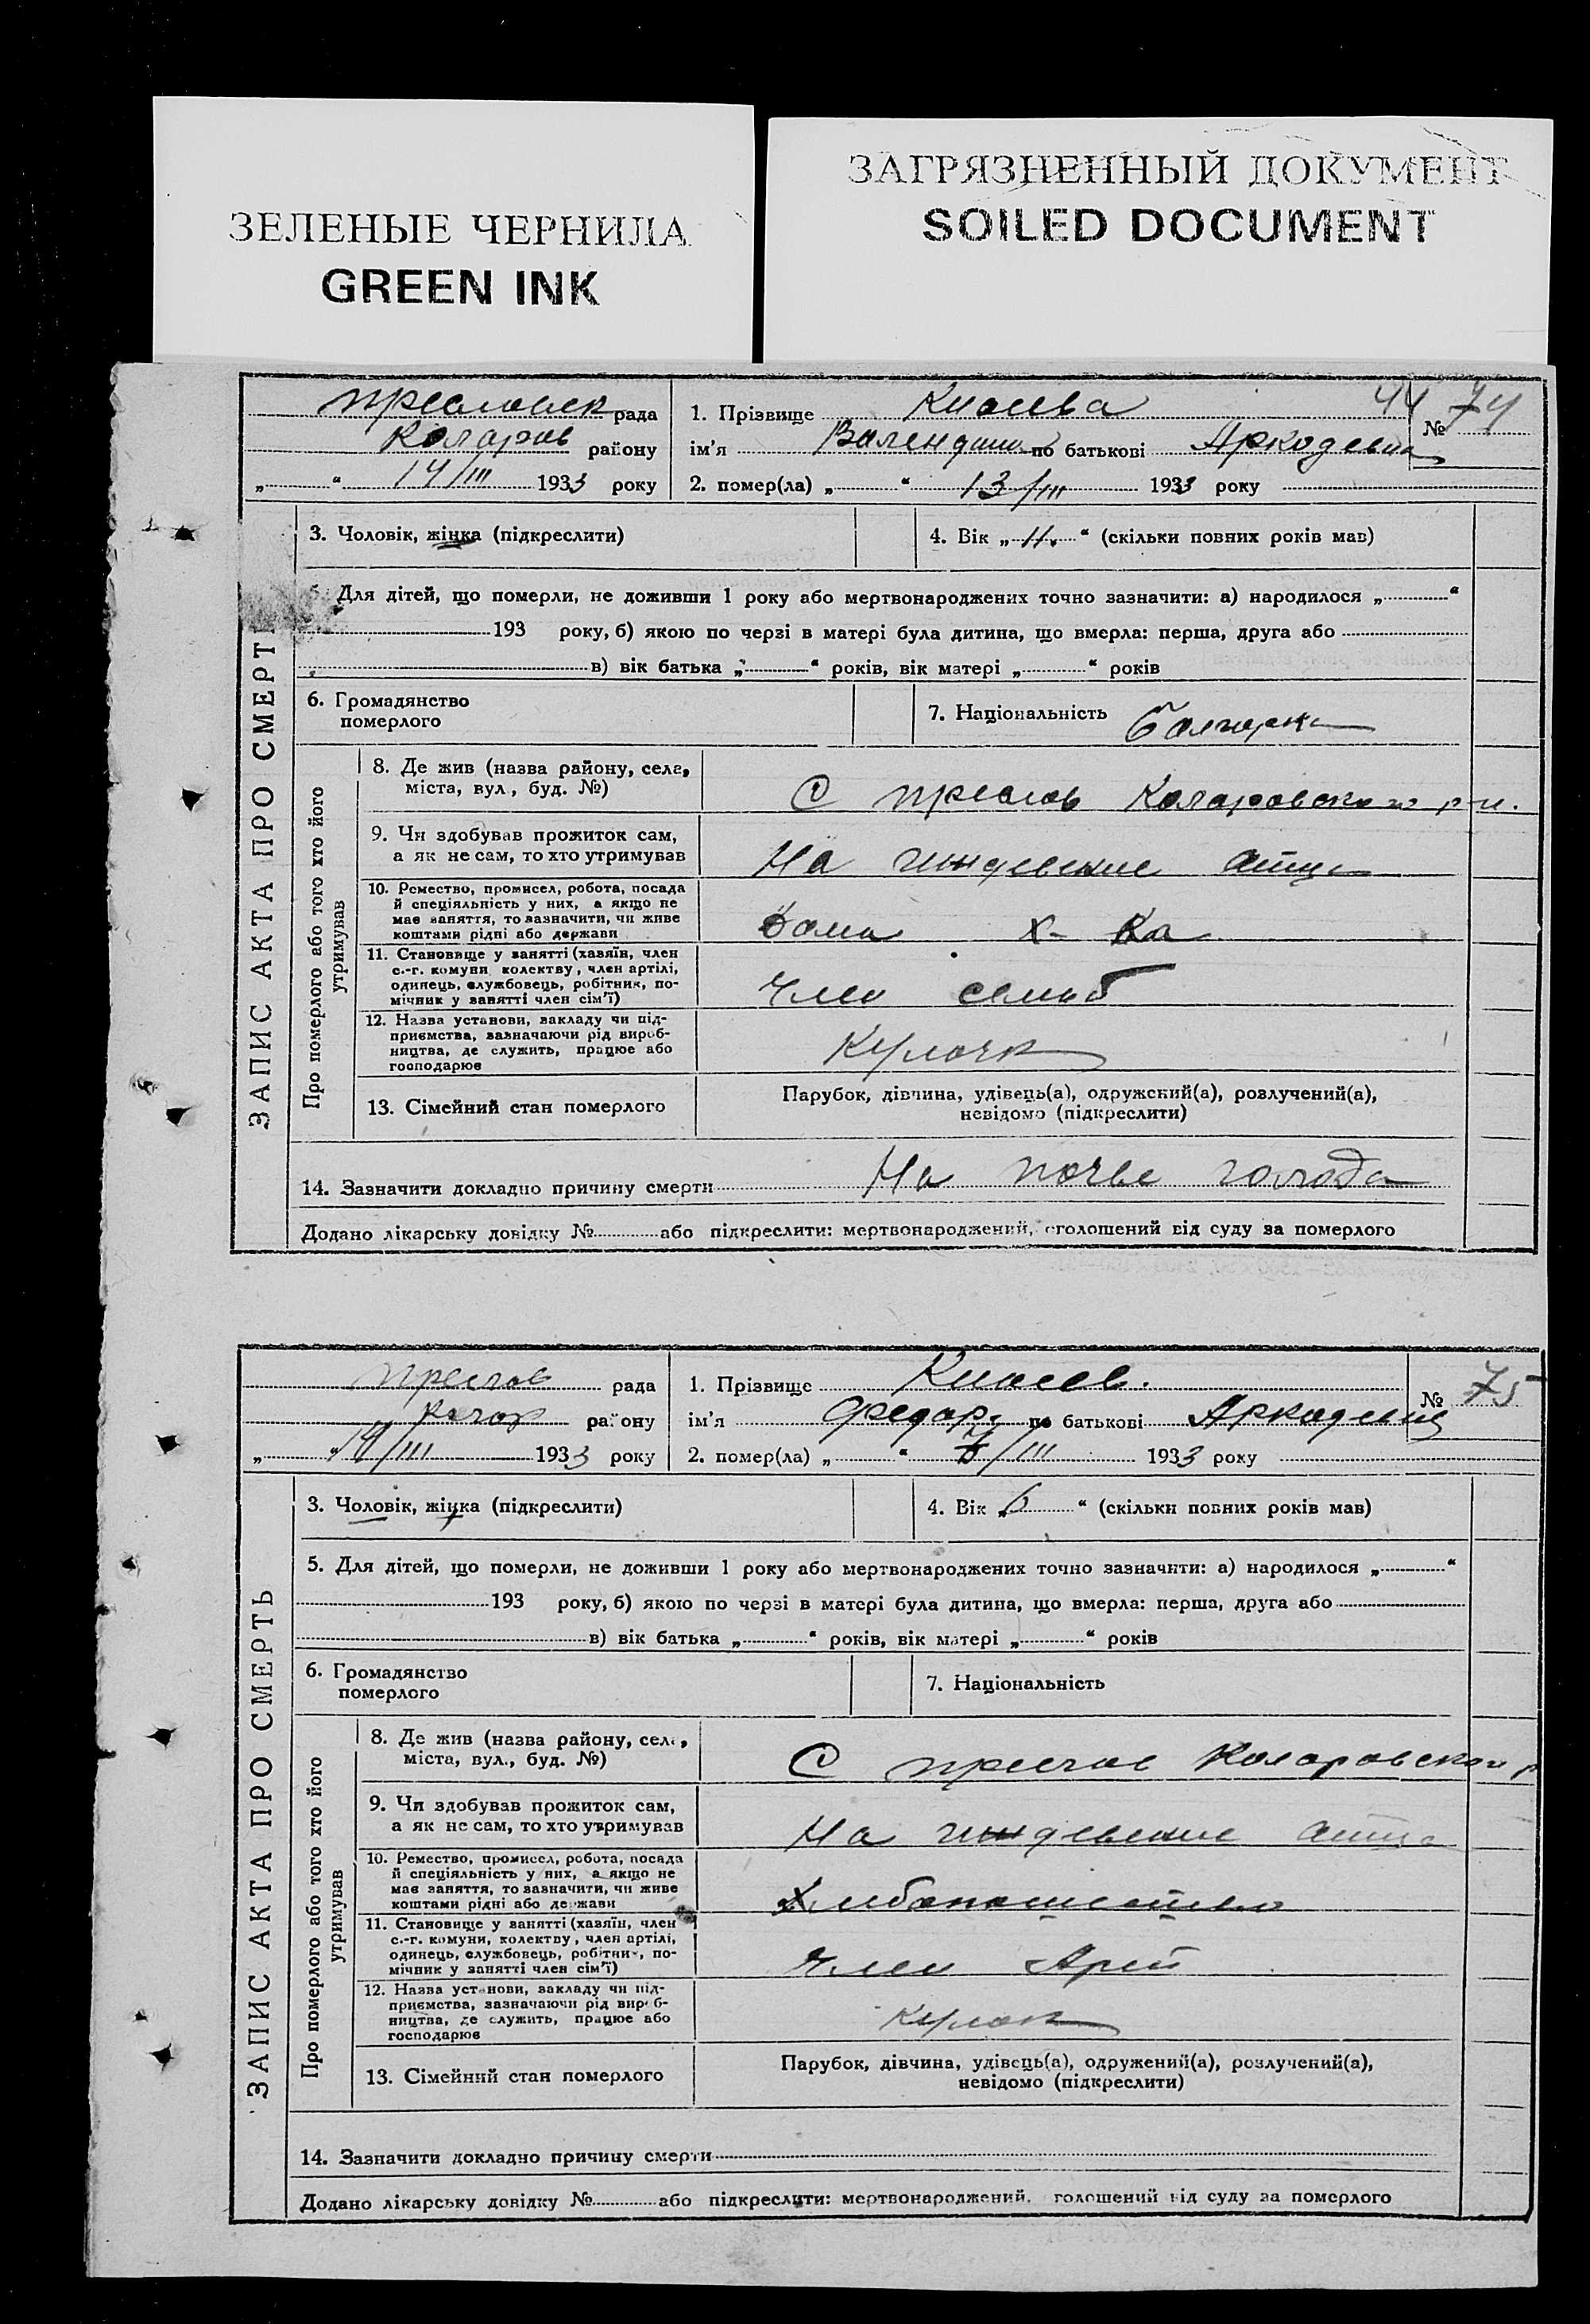 ЗЕЛЕНЫЕ ЧЕРНИЛА
GREEN INK
ЗАГРЯЗНЕННЫЙ ДОКУМЕНТ
SOILED DOCUMENT
ЗАПИС АКТА ПРО СМЕРТЬ
рада
Коларов району
„ “ 14/III 1933 року
44 № 74
1. Прізвище Киосева
ім'я по батькові
2. помер(ла) „ “ 13/III 1933 року
3. Чоловік, жінка (підкреслити)
4. Вік „ 11. “ (скільки повних років мав)
5. Для дітей, що померли, не доживши 1 року або мертвонароджених точно зазначити: а) народилося „ “
193 року, б) якою по черзі в матері була дитина, що вмерла: перша, друга або
в) вік батька „ “ років, вік матері „ “ років
6. Громадянство
померлого
7. Національність болгарка
Про померлого або того хто його
утримував
8. Де жив (назва району, села,
міста, вул., буд. №)
С Преслав Коларовского р-н.
9. Чи здобував прожиток сам,
а як не сам, то хто утримував
На иждевение отца
10. Ремество, промисел, робота, посада
й спеціяльність у них, а якщо не
має заняття, то зазначити, чи живе
коштами рідні або держави
дома х-ка
11. Становище у занятті (хазяїн, член
с.-г. комуни, колектву, член артілі,
одинець, службовець, робітник, по-
мічник у занятті член сім'ї)
Член семьи
12. Назва установи, закладу чи під-
приємства, зазначаючи рід вироб-
ництва, де служить, працює або
господарює
13. Сімейний стан померлого
Парубок, дівчина, удівець(а), одружений(а), розлучений(а),
невідомо (підкреслити)
14. Зазначити докладно причину смерти На почве голода
Додано лікарську довідку № або підкреслити: мертвонароджений, оголошений від суду за померлого
ЗАПИС АКТА ПРО СМЕРТЬ
Преслав рада
Колар району
„ “ 14/III 1933 року
№ 75
1. Прізвище Киосев.
ім'я Федор. по батькові Аркадевич
2. помер(ла) „ “ /III 1933 року
3. Чоловік, жінка (підкреслити)
4. Вік „ 6 “ (скільки повних років мав)
5. Для дітей, що померли, не доживши 1 року або мертвонароджених точно зазначити: а) народилося „ “
193 року, б) якою по черзі в матері була дитина, що вмерла: перша, друга або
в) вік батька „ “ років, вік матері „ “ років
6. Громадянство
померлого
7. Національність
Про померлого або того хто його
утримував
8. Де жив (назва району, села,
міста, вул., буд. №)
С Преслав Коларовского р
9. Чи здобував прожиток сам,
а як не сам, то хто утримував
На иждевение отца
10. Ремество, промисел, робота, посада
й спеціяльність у них, а якщо не
має заняття, то зазначити, чи живе
коштами рідні або держави
11. Становище у занятті (хазяїн, член
с.-г. комуни, колектву, член артілі,
одинець, службовець, робітник, по-
мічник у занятті член сім'ї)
Член
12. Назва установи, закладу чи під-
приємства, зазначаючи рід вироб-
ництва, де служить, працює або
господарює
Кулак
13. Сімейний стан померлого
Парубок, дівчина, удівець(а), одружений(а), розлучений(а),
невідомо (підкреслити)
14. Зазначити докладно причину смерти
Додано лікарську довідку № або підкреслити: мертвонароджений, оголошений від суду за померлого